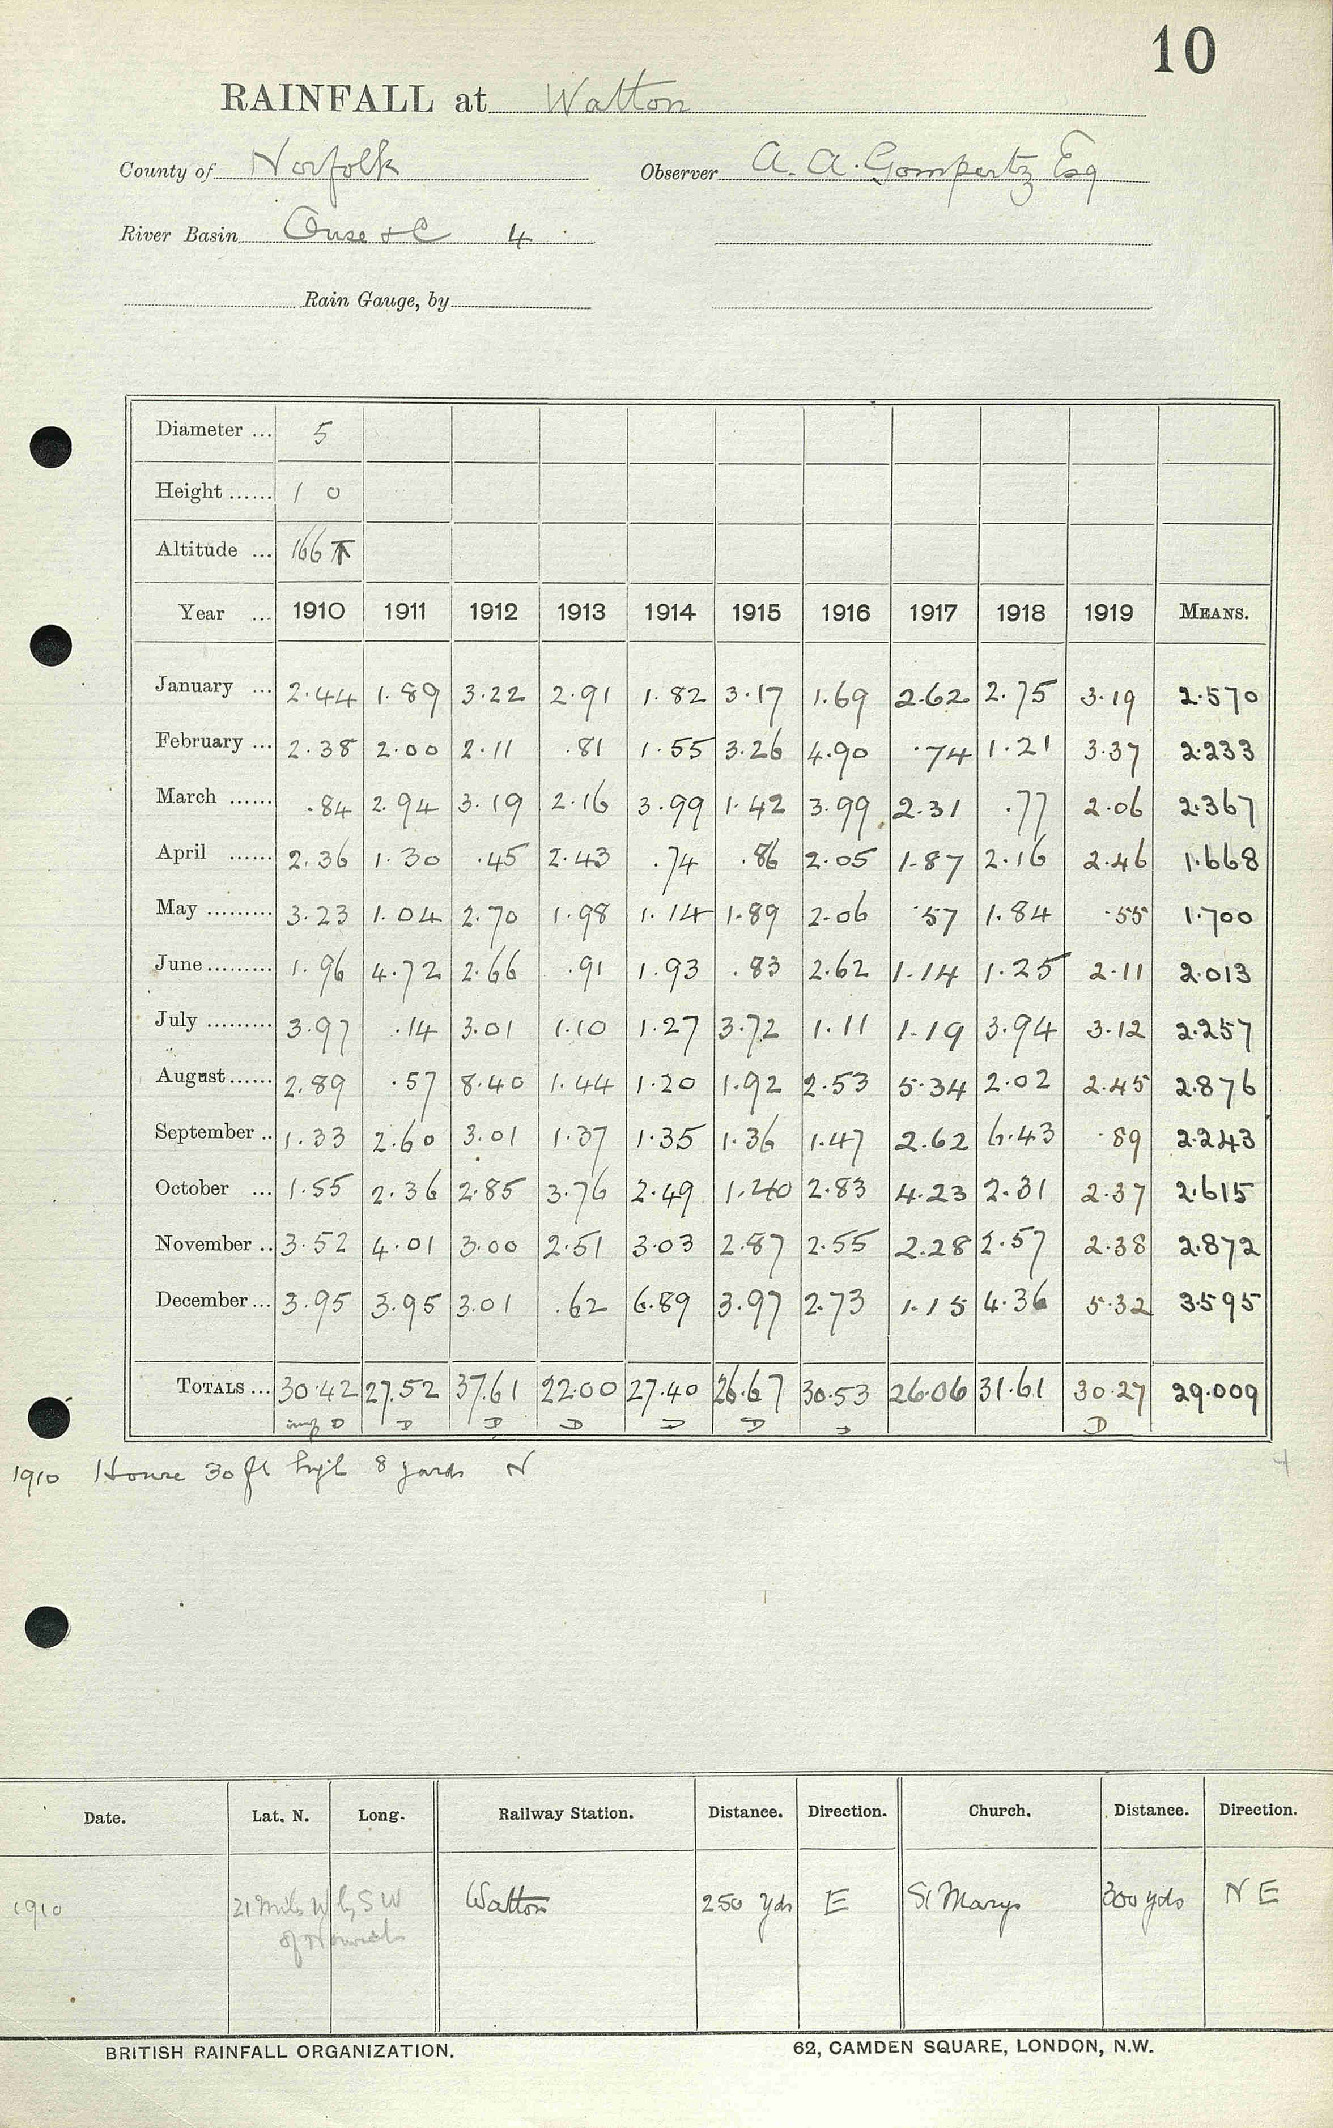 10
RAINFALL at Watton
County of Norfolk Observer A. A. Gompertz Esq
River Basin Ouse &c 4
Rain Gauge, by
Diameter ... 5
Height ...... 1 0
Altitude ... 166
Year ... 1910 1911 1912 1913 1914 1915 1916 1917 1918 1919 MEANS.
January ... 2.44 1.89 3.22 2.91 1.82 3.17 1.69 2.62 2.75 3.19 2.570
February ... 2.38 2.00 2.11 .81 1.55 3.26 4.90 .74 1.21 3.37 2.233
March ...... .84 2.94 3.19 2.16 3.99 1.42 3.99 2.31 .77 2.06 2.367
April ...... 2.36 1.30 .45 2.43 .74 .86 2.05 1.87 2.16 2.46 1.668
May ......... 3.23 1.04 2.70 1.98 1.14 1.89 2.06 .57 1.84 .55 1.700
June ......... 1.96 4.72 2.66 .91 1.93 .83 2.62 1.14 1.25 2.11 2.013
July ......... 3.97 .14 3.01 1.10 1.27 3.72 1.11 1.19 3.94 3.12 2.257
August ...... 2.89 .57 8.40 1.44 1.20 1.92 2.53 5.34 2.02 2.45 2.876
September .. 1.33 2.60 3.01 1.37 1.35 1.36 1.47 2.62 6.43 .89 2.243
October ... 1.55 2.36 2.85 3.76 2.49 1.40 2.83 4.23 2.31 2.37 2.615
November .. 3.52 4.01 3.00 2.51 3.03 2.87 2.55 2.28 2.57 2.38 2.872
December ... 3.95 3.95 3.01 .62 6.89 3.97 2.73 1.15 4.36 5.32 3.595
TOTALS ... 30.42 27.52 37.61 22.00 27.40 26.67 30.53 26.06 31.61 30.27 29.009
D D D D D D D
1910 House 30 ft high 8 yards N 4
Date. Lat. N. Long. Railway Station. Distance. Direction. Church. Distance. Direction.
1910 21 miles W by SW Watton 250 yds E St Marys 300 yds N E
of Norwich
BRITISH RAINFALL ORGANIZATION. 62, CAMDEN SQUARE, LONDON, N.W.